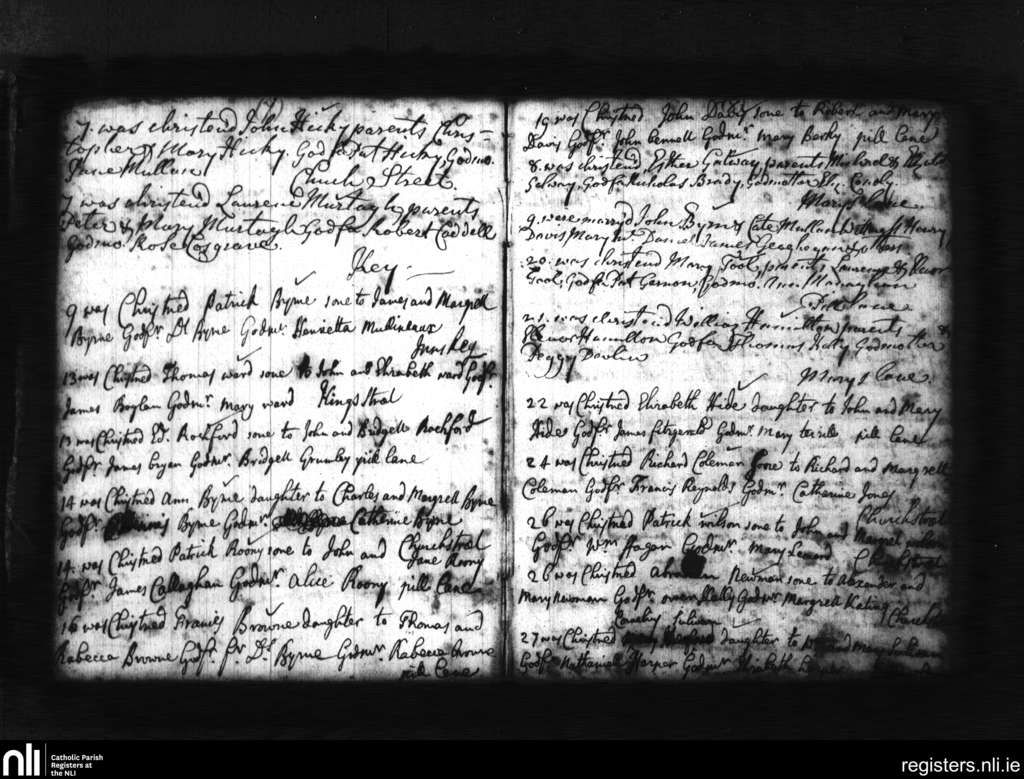 7. was christend John Hicky parents Chris-
topher & Mary Hicky. Godfa Pat Hicky, Godmo.
Jane Mullan
Church Street.
7 was christend Laurence Murtagh, parents
Peter & Mary Murtagh Godfa. Robert Caddell
Godmo. Rose Cosgrave.
Key.
9 was Christned Patrick Byrne sone to James and Margrett
Byrne Godfr. Dl Byrne Godmr. Henrietta Mullineaux
Inns key
13 was Christned Thomas ward sone to John and Elizabeth ward Godfr.
James Boylan Godmr. Mary ward Kings Strat
13 was Christned Ed. Rochford sone to John and Bridgett Rochford
Godfr James bryan Godmr. Bridgett Grumly pill Lane
14 was Christned Ann Byrne daughter to Charles and Margrett Byrne
Godfr. Byrne Godmr. Catherine Byrne
Churchstrat
14 was Christned Patrick Roony sone to John and Jane Roony
Godfr. James Callaghan Godmr. Alice Roony pill Lane
16 was Christned Francis Browne daughter to Thomas and
Rabecca Browne Godfr. fr. Ds. Byrne Godmr. Rabecca browne
pill Lane
19 was Christned John Davis sone to Robert and Mary
Davis Godfr. John Godmr. Mary pill Lane
8. was christend Esther Galway, parents &
Galway, Godfa Nicholas Brady, Godmother Conoly.
Marys Lane
9. were marryd John Byrne & Cate Mullan Witness Henry
Davis Mary Daniel James Geoghogan &
20. was christend Mary Tool, parents Laurence &
Tool, Godfa. Pat Gernon, Godmo.
Pill lane
21. was christend William Hamilton parents &
Hamilton Godfa. Thomas Godmother
Peggy Devlin
Marys lane.
22 was Christned Elizabeth Hide daughter to John and Mary
Hide Godfr James fitzgerald Godmr. Mary pill Lane
24 was Christned Richard Coleman sone to Richard and Margrett
Coleman Godfr Francis Reynolds Godmr. Catherine Jones
Churchstrat
26 was Christned Patrick wilson sone to John and Margret wilson
Godfr. Wm. Hagan Godmr. Mary Churchstrat
26 was Christned Newman sone to Alexander and
Mary Newman Godfr owen Kelly Godmr Margrett Keting
27 was Christned daughter to and
Godfr Nathaniel Harper Godmr Elizabeth
nli
Catholic Parish
Registers at
the NLI
registers.nli.ie